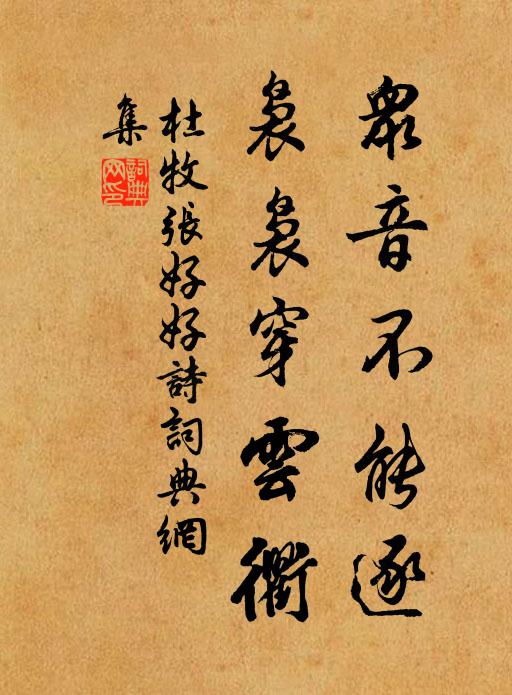 眾音不能逐
裊裊穿雲衢
杜牧張好好詩詞典網
集
詞典
网印